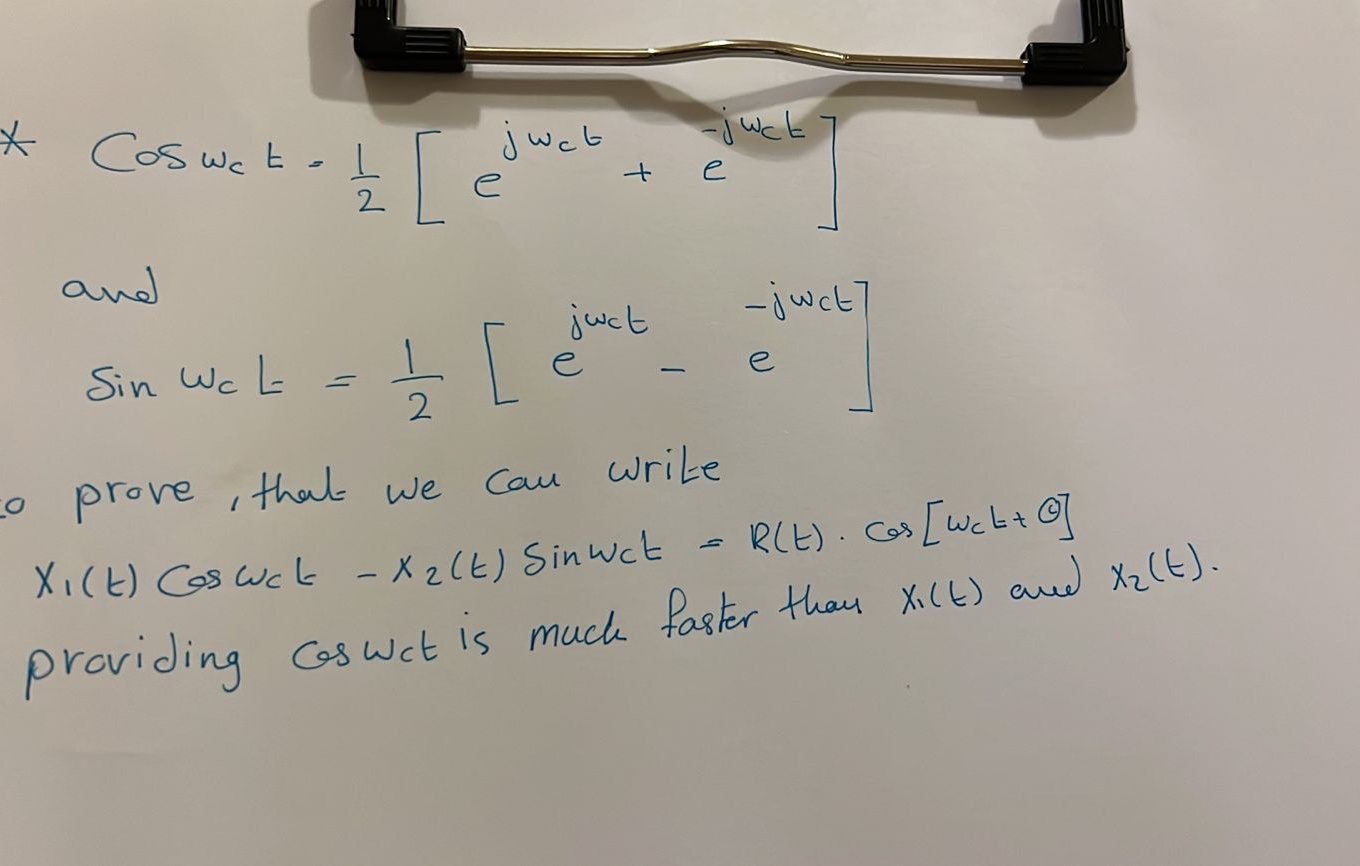 * Cos ωc t = 1/2 [ e^jωct + e^-jωct ]
and
Sin ωc t = 1/2 [ e^jωct - e^-jωct ]
to prove, that we can write
X1(t) Cos ωct - X2(t) Sin ωct = R(t). Cos [ωct + Θ]
providing Cos ωct is much faster than X1(t) and X2(t).